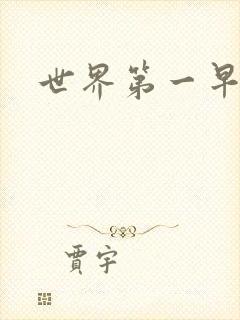 世界第一早
賈宇